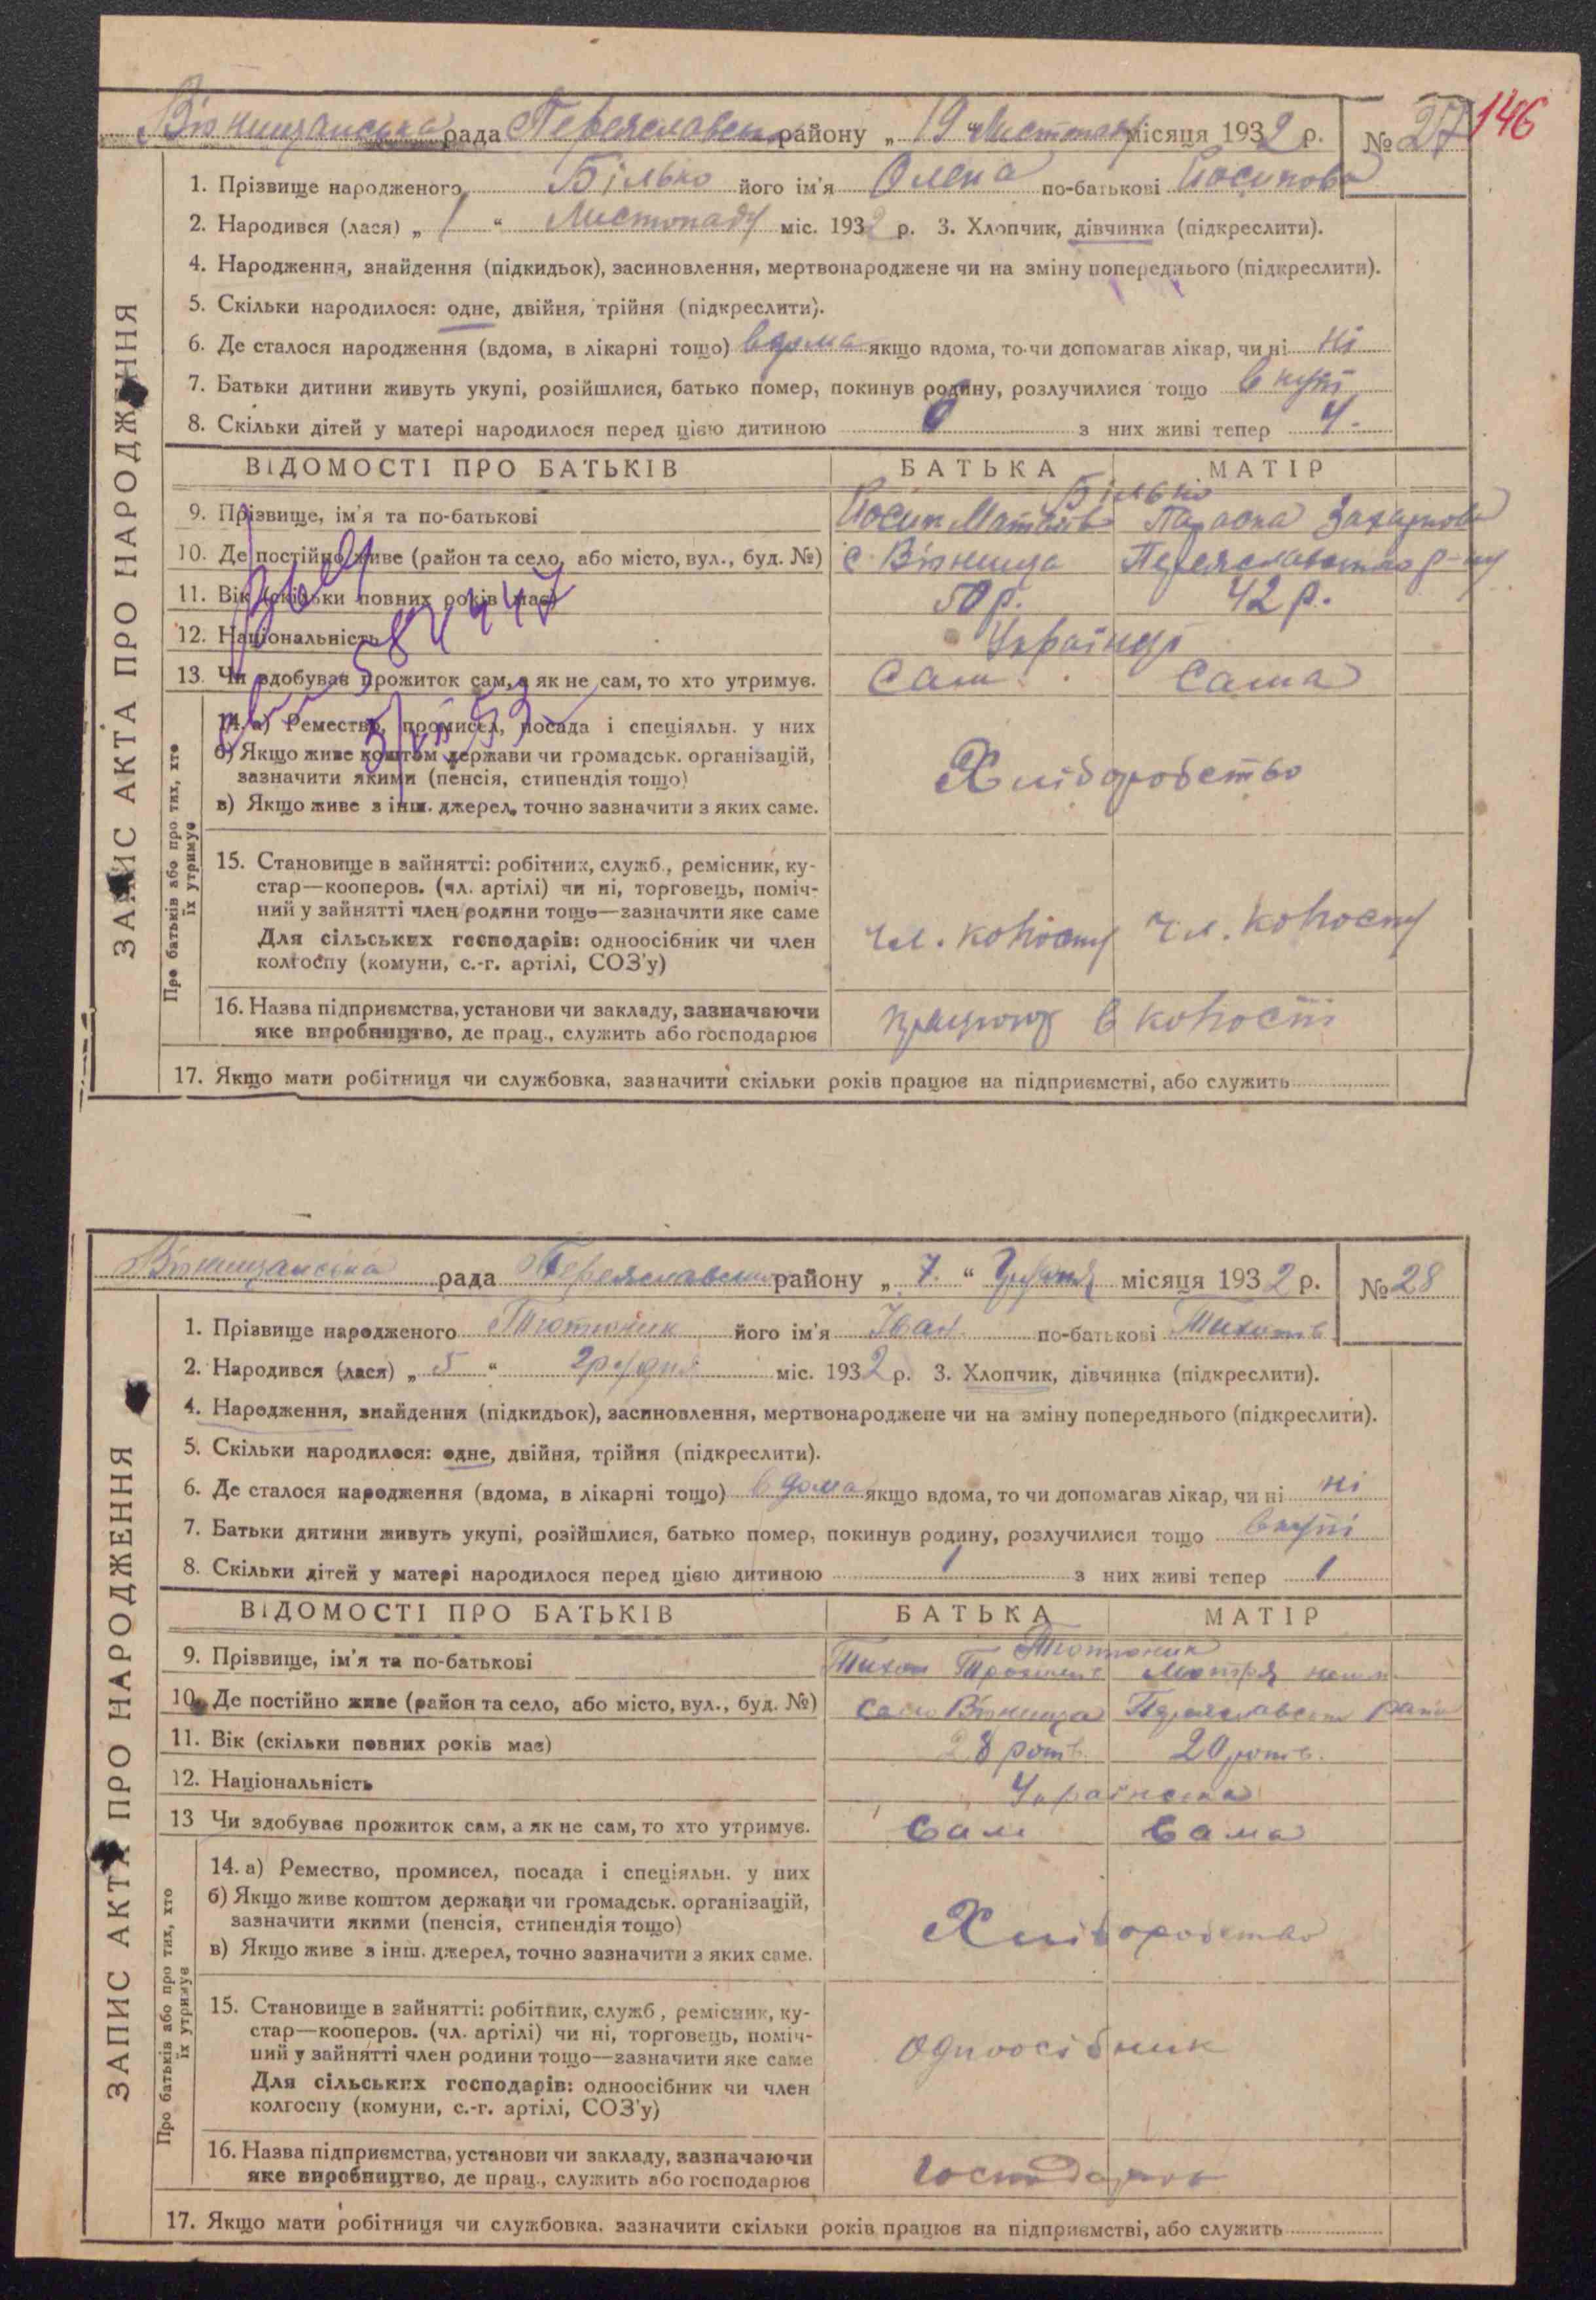 146
Вінницанська рада Переяславськ району „ 19 “ Листопаду місяця 1932 р. № 27
1. Прізвище народженого Білько його ім'я Олена по-батькові Йосипова
2. Народився (лася) „ 1 “ Листопаду міс. 1932 р. 3. Хлопчик, дівчинка (підкреслити).
4. Народження, знайдення (підкидьок), засиновлення, мертвонароджене чи на зміну попереднього (підкреслити).
5. Скільки народилося: одне, двійня, трійня (підкреслити).
6. Де сталося народження (вдома, в лікарні тощо) вдома якщо вдома, то чи допомагав лікар, чи ні ні
7. Батьки дитини живуть укупі, розійшлися, батько помер, покинув родину, розлучилися тощо вкупі
8. Скільки дітей у матері народилося перед цією дитиною з них живі тепер 4.
ВІДОМОСТІ ПРО БАТЬКІВ БАТЬКА МАТІР
Білько
9. Прізвище, ім'я та по-батькові Йосип Матвіїв Параска Захарнова
10. Де постійно живе (район та село, або місто, вул., буд. №) с. Вінница Переяславського р-ну
11. Вік (скільки повних років має) 50 р. 42 р.
12. Національність Українці
13. Чи здобуває прожиток сам, а як не сам, то хто утримує. Сам Сама
14. а) Ремество, промисел, посада і спеціяльн. у них
б) Якщо живе коштом держави чи громадськ. організацій,
зазначити якими (пенсія, стипендія тощо)
в) Якщо живе з інш. джерел, точно зазначити з яких саме.
Хліборобство
15. Становище в зайнятті: робітник, служб., ремісник, ку-
стар—кооперов. (чл. артілі) чи ні, торговець, поміч-
ний у зайнятті член родини тощо—зазначити яке саме
Для сільських господарів: одноосібник чи член
колгоспу (комуни, с.-г. артілі, СОЗ'у)
чл. колгоспу чл. колгоспу
16. Назва підприємства, установи чи закладу, зазначаючи
яке виробництво, де прац., служить або господарює
працюют в колгоспі
17. Якщо мати робітниця чи службовка, зазначити скільки років працює на підприємстві, або служить
ЗАПИС АКТА ПРО НАРОДЖЕННЯ
Про батьків або про тих, хто
їх утримує
Вінницанська рада Переяславського району „ 7. “ Грудня місяця 1932 р. № 28
1. Прізвище народженого Тютюник його ім'я Іван по-батькові Тихонів
2. Народився (лася) „ 5 “ грудня міс. 1932 р. 3. Хлопчик, дівчинка (підкреслити).
4. Народження, знайдення (підкидьок), засиновлення, мертвонароджене чи на зміну попереднього (підкреслити).
5. Скільки народилося: одне, двійня, трійня (підкреслити).
6. Де сталося народження (вдома, в лікарні тощо) вдома якщо вдома, то чи допомагав лікар, чи ні ні
7. Батьки дитини живуть укупі, розійшлися, батько помер, покинув родину, розлучилися тощо вкупі
8. Скільки дітей у матері народилося перед цією дитиною 1 з них живі тепер 1
ВІДОМОСТІ ПРО БАТЬКІВ БАТЬКА МАТІР
Тютюник
9. Прізвище, ім'я та по-батькові Тихон Мотря
10. Де постійно живе (район та село, або місто, вул., буд. №) Село Вінница Переяславськ район
11. Вік (скільки повних років має) 28 років 20 років.
12. Національність Українська
13 Чи здобуває прожиток сам, а як не сам, то хто утримує. Сам Сама
14. а) Ремество, промисел, посада і спеціяльн. у них
б) Якщо живе коштом держави чи громадськ. організацій,
зазначити якими (пенсія, стипендія тощо)
в) Якщо живе з інш. джерел, точно зазначити з яких саме.
Хліборобство
15. Становище в зайнятті: робітник, служб, ремісник, ку-
стар—кооперов. (чл. артілі) чи ні, торговець, поміч-
ний у зайнятті член родини тощо—зазначити яке саме
Для сільських господарів: одноосібник чи член
колгоспу (комуни, с.-г. артілі, СОЗ'у)
одноосібник
16. Назва підприємства, установи чи закладу, зазначаючи
яке виробництво, де прац., служить або господарює
Господарює
17. Якщо мати робітниця чи службовка. зазначити скільки років працює на підприємстві, або служить
ЗАПИС АКТА ПРО НАРОДЖЕННЯ
Про батьків або про тих, хто
їх утримує